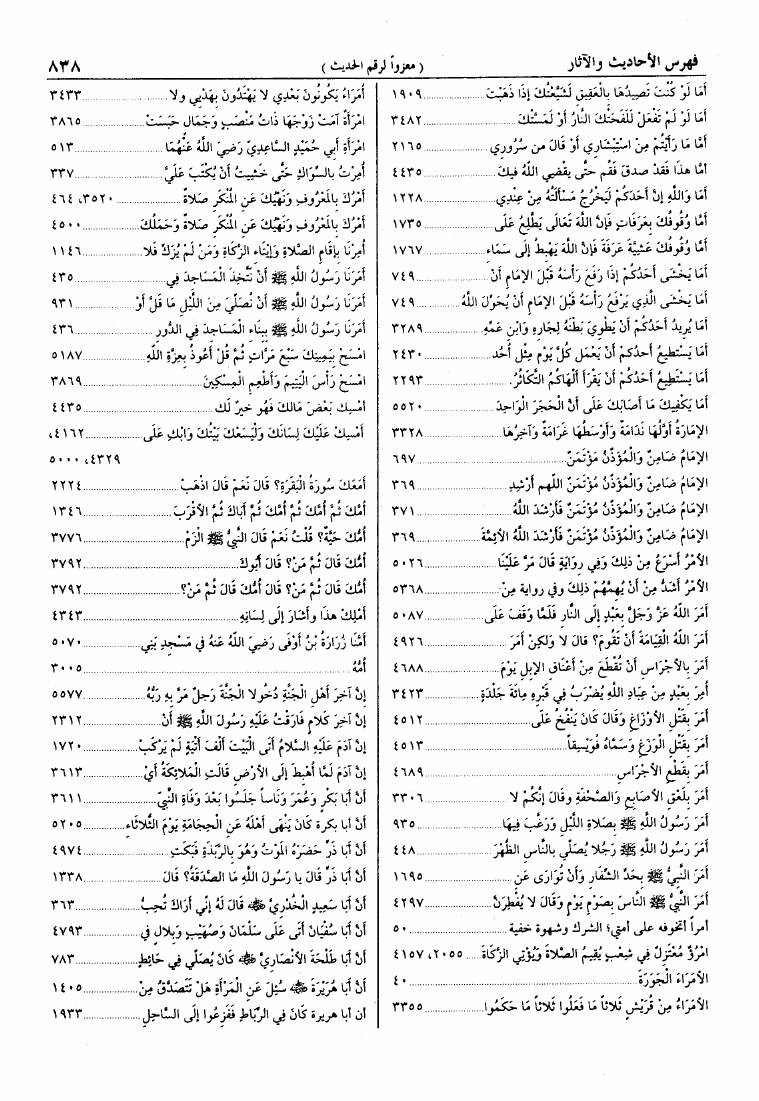 فهرس الأحاديث والآثار
( معزواً لرقم الحديث )
٨٣٨
أَمَا لَوْ كُنْتَ تَصِيدُهَا بِالْعَقِيقِ لَشَيَّعْتُكَ إِذَا ذَهَبْتَ ١٩٠٩
أَمَا لَوْ لَمْ تَفْعَلْ لَلَفَحَتْكَ النَّارُ أَوْ لَمَسَّتْكَ ٣٤٨٢
أَمَّا مَا رَأَيْتُمْ مِنْ اسْتِبْشَارِي أَوْ قَالَ مِن سُرُورِي ٢١٦٥
أمَّا هذَا فَقَدْ صدقَ فَقُم حتَّى يقْضِي اللهُ فيكَ ٤٤٣٥
أَمَا وَاللهِ إِنَّ أَحَدَكُمْ لَيَخْرُجُ مَسْأَلَتُهُ مِنْ عِنْدِي ١٢٢٨
أَمَّا وُقُوفُكَ بِعَرَفَاتٍ فَإِنَّ اللهَ تَعَالَى يَطَّلِعُ عَلَى ١٧٣٥
أَمَّا وُقُوفُكَ عَشِيَّةَ عَرَفَةَ فَإِنَّ اللهَ يَهْبِطُ إِلَى سَمَاءِ ١٧٦٧
أَمَا يَخْشَى أَحَدُكُمْ إِذَا رَفَعَ رَأْسَهُ قَبْلَ الإِمَامِ أَنْ ٧٤٩
أَمَا يَخْشَى الَّذِي يَرْفَعُ رَأْسَهُ قَبْلَ الإِمَامِ أَنْ يُحَوِّلَ اللهُ ٧٤٩
أَمَا يُرِيدُ أَحَدُكُمْ أَنْ يَطْوِيَ بَطْنَهُ لِجَارِهِ وَابْنِ عَمِّهِ ٣٢٨٩
أَمَا يَسْتَطِيعُ أَحَدُكمْ أَنْ يَعْمَل كُلَّ يَوْمٍ مِثْل أُحُد ٢٤٣٠
أَمَا يَسْتَطِيعُ أَحَدُكُمْ أَنْ يَقْرَأَ أَلْهَاكُمُ التَّكَاثُرُ ٢٢٩٣
أَمَا يَكْفِيكَ مَا أَصَابَكَ عَلَى أَنَّ الْحَجَرَ الْوَاحِدَ ٥٥٢٠
الإِمَارَةُ أَوَّلُهَا نَدَامَةٌ وَأَوْسَطُهَا غَرَامَةٌ وَآخِرُهَا ٣٣٢٨
الإِمَامُ ضَامِنٌ وَالْمُؤَذِّنُ مُؤْتَمَنٌ ٦٩٧
الإِمَامُ ضَامِنٌ وَالْمُؤَذِّنُ مُؤْتَمَنٌ اللَّهم أَرْشِدِ ٣٦٩
الإِمَامُ ضَامِنٌ وَالْمُؤَذِّنُ مُؤْتَمَنٌ فَأَرْشَدَ اللهُ ٣٧١
الإِمَامُ ضَامِنٌ وَالْمُؤَذِّنُ مُؤْتَمَنٌ فَأَرْشَدَ اللهُ الأَئِمَّةَ ٣٦٩
الأَمْرُ أَسْرَعُ مِنْ ذلِكَ وَفِي رِوَايَةٍ قَالَ مَرَّ عَلَيْنَا ٥٠٢٦
الأَمْرُ أَشَدُّ مِنْ أَنْ يُهِمَّهُمْ ذلِكَ وفي رواية مِنْ ٥٣٦٨
أَمَرَ اللهُ عَزَّ وَجَلَّ بِعَبْدٍ إِلَى النَّارِ فَلَمَّا وَقَفَ عَلَى ٥٠٨٧
أَمَرَ اللهُ الْقِيَامَةَ أَنْ تَقُومَ؟ قالَ لا وَلكِنْ أَمَرَ ٤٩٢٦
أَمَرَ بِالأَجْرَاسِ أَنْ تُقْطَعَ مِنْ أَعْنَاقِ الإِبِلِ يَوْمَ ٤٦٨٨
أُمِرَ بِعَبْدٍ مِنْ عِبَادِ اللهِ يُضْرَبُ فِي قَبْرِهِ مِائَةَ جَلْدَةٍ ٣٤٢٣
أَمَرَ بِقَتْلِ الأَوْزَاغِ وَقَالَ كَانَ يَنْفُخُ عَلَى ٤٥١٢
أَمَرَ بِقَتْلِ الْوَزَغِ وَسَمَّاهُ فُوَيْسِقاً ٤٥١٣
أَمَرَ بِقَطْعِ الأَجْرَاسِ ٤٦٨٩
أَمَرَ بِلَعْقِ الأَصَابِعِ وَالصَّحْفَةِ وقَالَ إِنَّكُمْ لا ٣٣٠٦
أَمَرَ رَسُولُ اللهِ ﷺ بِصَلاةِ اللَّيْلِ وَرَغَّبَ فِيهَا ٩٣٥
أَمَرَ رَسُولُ اللهِ ﷺ رَجُلًا يُصَلِّي بِالنَّاسِ الظُّهْرَ ٤٤٨
أَمَرَ النَّبِيُّ ﷺ بِحَدِّ الشِّفَارِ وَأَنْ تُوَارَى عَنِ ١٦٩٥
أَمَرَ النَّبِيُّ ﷺ النَّاسَ بِصَوْمِ يَوْمٍ وَقَالَ لا يُفْطِرَنَّ ٤٢٩٧
أمراً أتخوفه على أمتي؛ الشرك وشهوة خفية ٥٠
امْرُؤٌ مُعْتَزِلٌ فِي شِعْبٍ يُقِيمُ الصَّلاةَ وَيُؤْتِي الزَّكَاةَ ٢٠٥٥، ٤١٥٧
الأُمَرَاءَ الْجَوَرَةَ ٤٠
الأُمَرَاءُ مِنْ قُرَيْشٍ ثَلَاثاً مَا فَعَلُوا ثَلاثاً مَا حَكَمُوا ٣٣٥٥
أُمَرَاءُ يَكُونُونَ بَعْدِي لا يَهْتَدُونَ بِهَدْيِي ولا ٣٤٣٣
امْرَأَةٌ آمَتْ زَوْجَهَا ذَاتُ مَنْصَبٍ وَجَمَالٍ حَبَسَتْ ٣٨٦٥
امْرَأَةِ أَبِي حُمَيْدٍ السَّاعِدِيِّ رَضِيَ اللهُ عَنْهُمَا ٥١٣
أُمِرْتُ بِالسِّوَاكِ حَتَّى خَشِيتُ أَنْ يُكْتَبَ عَلَيَّ ٣٣٧
أَمْرُكَ بِالْمَعْرُوفِ وَنَهْيُكَ عَنِ الْمُنْكَرِ صَلاةٌ ٣٥٢٠، ٤٦٤
أَمْرُكَ بِالْمَعْرُوفِ وَنَهْيُكَ عَنِ الْمُنْكَرِ صَلاةٌ وَحَمْلُكَ ٤٥٠٠
أُمِرْنَا بِإِقَامِ الصَّلاةِ وَإِيْتَاءِ الزَّكَاةِ وَمَنْ لَمْ يُزَكِّ فَلا ١١٤٦
أَمَرَنَا رَسُولُ اللهِ ﷺ أَنْ نَتَّخِذَ الْمَسَاجِدَ فِي ٤٣٥
أَمَرَنَا رَسُولُ اللهِ ﷺ أَنْ نُصَلِّيَ مِنَ اللَّيْلِ مَا قَلَّ أَوْ ٩٣١
أَمَرَنَا رَسُولُ اللهِ ﷺ بِبِنَاءِ الْمَسَاجِدِ فِي الدُّورِ ٤٣٦
امْسَحْ بِيَمِينِكَ سَبْعَ مَرَّاتٍ ثُمَّ قُلْ أَعُوذُ بِعِزَّةِ اللهِ ٥١٨٧
امْسَحْ رَأْسَ الْيَتِيمِ وَأَطْعِمِ الْمِسْكِينَ ٣٨٦٩
أَمْسِك بَعْضَ مَالكَ فَهُو خيرٌ لَك ٤٤٣٥
أَمْسِكْ عَلَيْكَ لِسَانَكَ وَلْيَسَعْكَ بَيْتُكَ وَابْكِ عَلَى ٤١٦٢،
٤٣٢٩، ٥٠٠٠
أَمَعَكَ سُورَةُ الْبَقَرَةِ؟ قَالَ نَعَمْ قَالَ اذْهَبْ ٢٢٢٤
أُمَّكَ ثُمَّ أُمَّكَ ثُمَّ أُمَّكَ ثُمَّ أَبَاكَ ثُمَّ الأَقْرَبَ ١٣٤٦
أُمُّكَ حَيَّةٌ؟ قُلْتُ نَعَمْ قَالَ النَّبِيُّ ﷺ الْزَمْ ٣٧٧٦
أُمُّكَ قَالَ ثُمَّ مَنْ؟ قَالَ أَبُوكَ ٣٧٩٢
أُمُّكَ قَالَ ثُمَّ مَنْ؟ قَالَ أُمُّكَ قَالَ ثُمَّ مَنْ؟ ٣٧٩٢
أَمْلِكْ هذَا وأَشَارَ إِلَى لِسَانِهِ ٤٣٤٣
أَمَّنَا زُرَارَةُ بْنُ أَوْفَى رَضِيَ اللهُ عَنْهُ فِي مَسْجِدِ بَنِي ٥٠٧٠
أُمُّهُ ٣٠٠٥
إِنَّ آخِرَ أَهْلِ الْجَنَّةِ دُخُولًا الْجَنَّةَ رَجُلٌ مَرَّ بِهِ رَبُّهُ ٥٥٧٧
إِنَّ آخِرَ كَلامٍ فَارَقْتُ عَلَيْهِ رَسُولَ اللهِ ﷺ أَنْ ٢٣١٢
إِنَّ آدَمَ عَلَيْهِ السَّلامُ أَتَى الْبَيْتَ أَلْفَ أَتْيَةٍ لَمْ يَرْكَبْ ١٧٢٠
إِنَّ آدَمَ لَمَّا أُهْبِطَ إِلَى الأَرْضِ قَالَتِ الْمَلائِكَةُ أَيْ ٣٦١٣
أَنَّ أَبَا بَكْرٍ وَعُمَرَ وَنَاساً جَلَسُوا بَعْدَ وَفَاةِ النَّبِيِّ ٣٦١١
أَنَّ أبا بكرة كَانَ يَنْهَى أَهْلَهُ عَنِ الْحِجَامَةِ يَوْمَ الثُّلاثَاءِ ٥٢٠٥
أَنَّ أَبَا ذَرٍّ حَضَرَهُ الْمَوْتُ وَهُوَ بِالرَّبَذَةِ فَبَكَتِ ٤٩٧٤
أَنَّ أَبَا ذَرٍّ قَالَ يا رَسُولَ اللهِ مَا الصَّدَقَةُ؟ قَالَ ١٣٣٨
أَنَّ أَبَا سَعِيدٍ الْخُدْرِيَّ ﵁ قَالَ لَهُ إِنِّي أَرَاكَ تُحِبُّ ٣٦٣
أَنَّ أَبَا سُفْيَانَ أَتَى عَلَى سَلْمَانَ وَصُهَيْبٍ وَبِلالٍ فِي ٤٧٩٣
أَنَّ أَبَا طَلْحَةَ الأَنْصَارِيَّ ﵁ كَانَ يُصَلِّي فِي حَائِطٍ ٧٨٣
أَنَّ أَبَا هُرَيْرَةَ ﵁ سُئِلَ عَنِ الْمَرْأَةِ هَلْ تَتَصَدَّقُ مِنْ ١٤٠٥
أن أبا هريرة كَانَ فِي الرِّبَاطِ فَفَزِعُوا إِلَى السَّاحِلِ ١٩٣٣